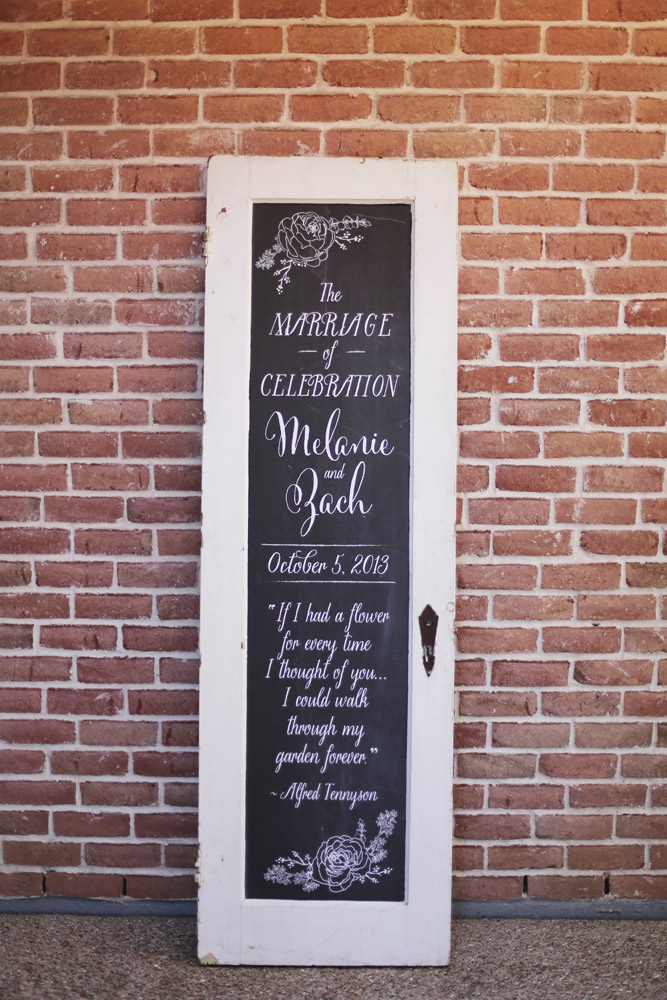 The
MARRIAGE
of
CELEBRATION
Melanie
and
Zach
October 5, 2013
"If I had a flower
for every time
I thought of you...
I could walk
through my
garden forever."
~ Alfred Tennyson